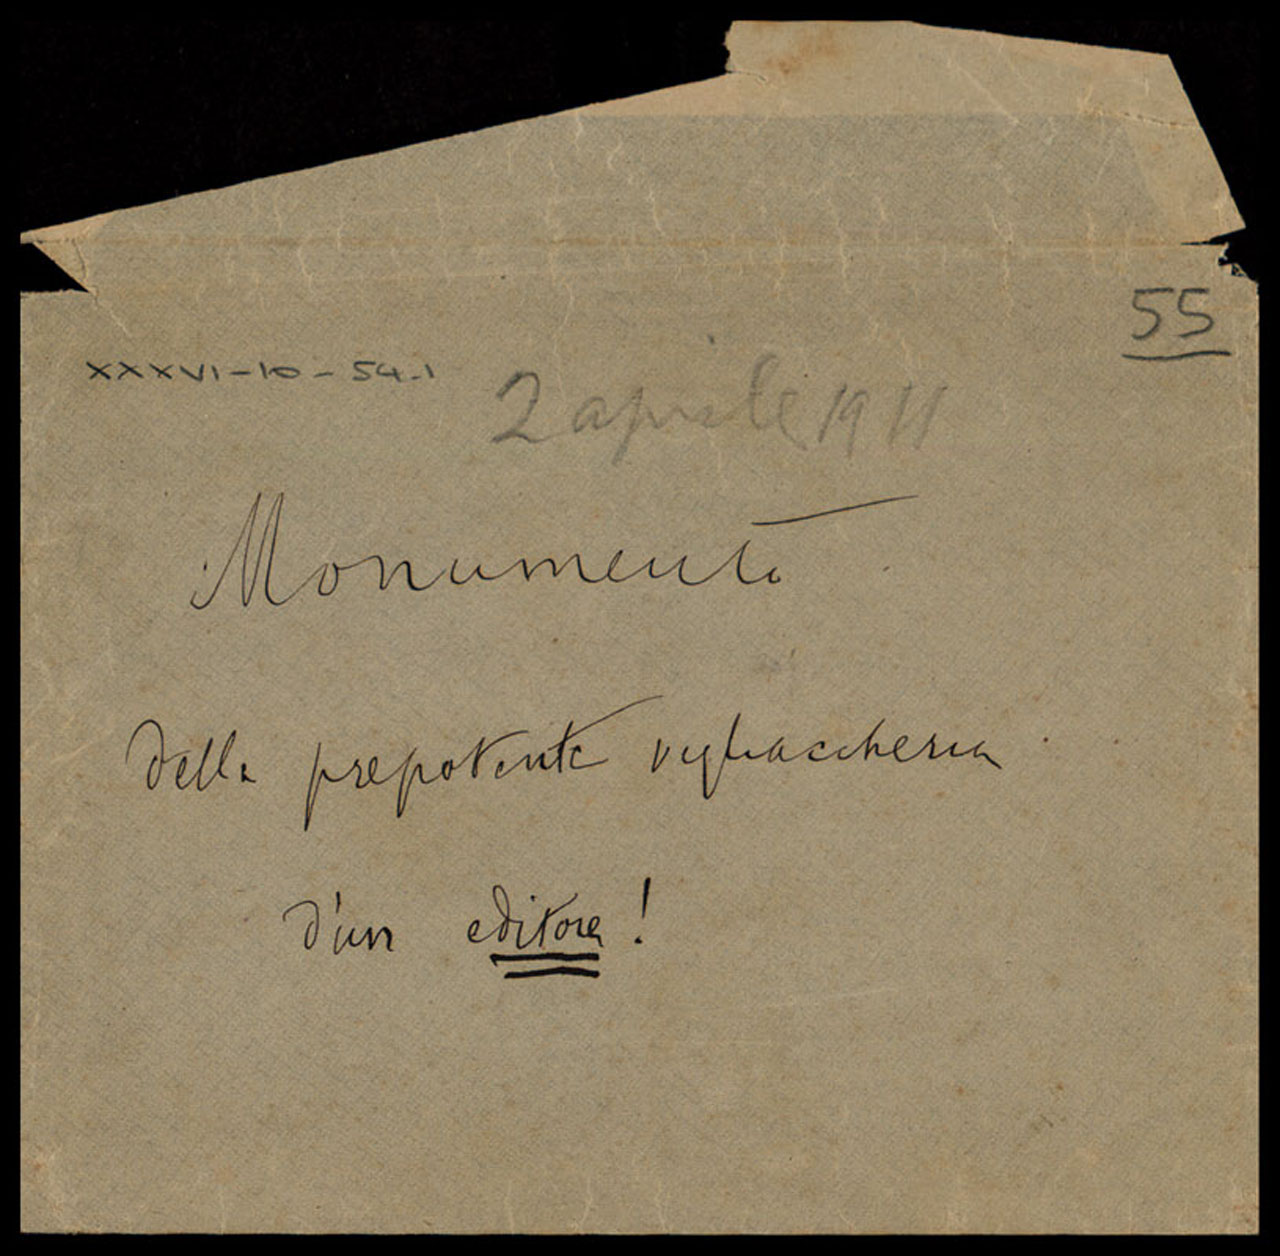 55
XXXVI-10-54.1
2 aprile 1911
Monumento
della prepotente vigliaccheria
d'un editore!